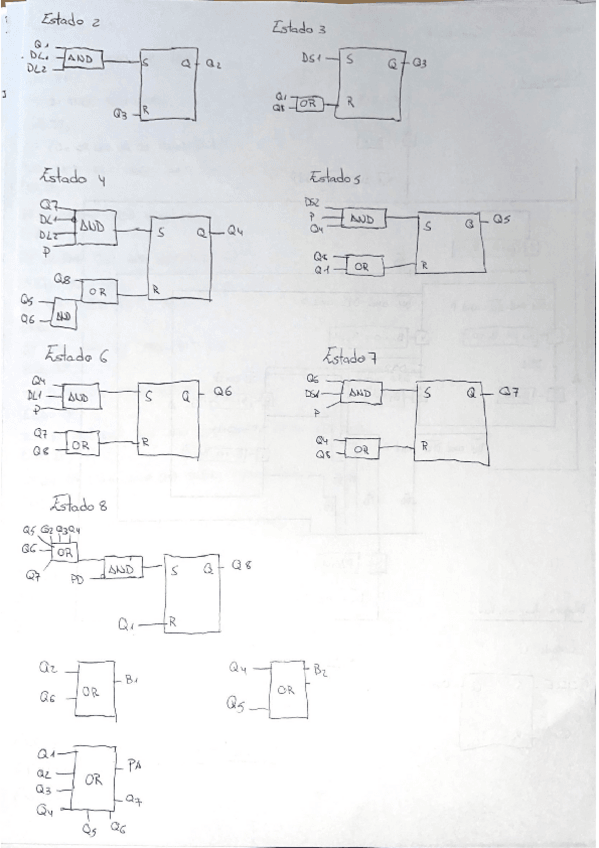 Estado 2
Q1
DL1
DL2
AND
S
Q
Q2
Q3
R
Estado 3
DS1
S
Q
Q3
Q1
Q8
OR
R
Estado 4
Q7
DL1
DL2
P
AND
S
Q
Q4
Q8
OR
R
Q5
Q6
AND
Estado 5
DS2
P
Q4
AND
S
Q
Q5
Q6
Q1
OR
R
Estado 6
Q4
DL1
P
AND
S
Q
Q6
Q7
Q8
OR
R
Estado 7
Q6
DS1
P
AND
S
Q
Q7
Q4
Q8
OR
R
Estado 8
Q5 Q2 Q3 Q4
Q6
Q7
OR
PD
AND
S
Q
Q8
Q1
R
Q2
Q6
OR
B1
Q4
Q5
OR
B2
Q1
Q2
Q3
Q4
OR
PA
Q7
Q5
Q6